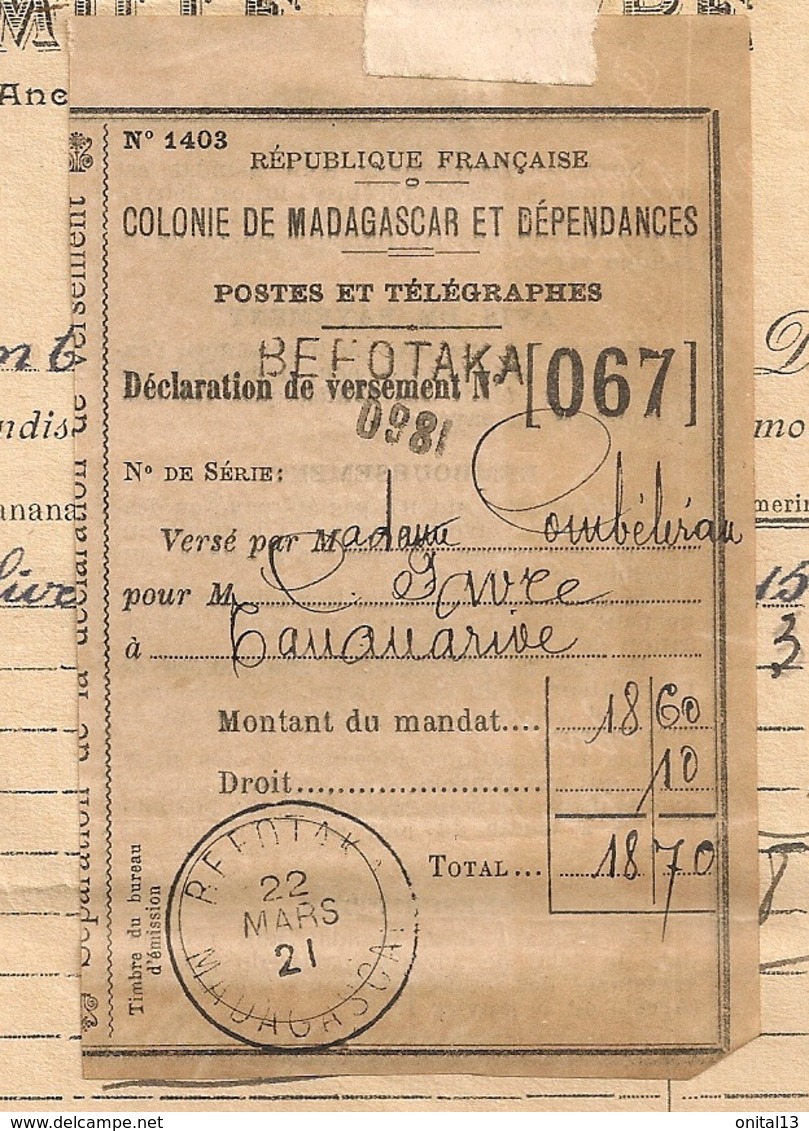 Anc
N° 1403
RÉPUBLIQUE FRANÇAISE
COLONIE DE MADAGASCAR ET DÉPENDANCES
POSTES ET TÉLÉGRAPHES
BEFOTAKA
Déclaration de versement N° [067]
0981
N° DE SÉRIE:
Versé par Madame Combéléran
pour M Favre
à Tananarive
Montant du mandat.... 18 60
Droit 10
TOTAL... 18 70
Timbre du bureau
d'émission
BEFOTAKA
22
MARS
21
MADAGASCAR
Séparation de la déclaration de versement
ent
ndis
anana
live
D
mo
merin
15
3
delcampe.net
onital13